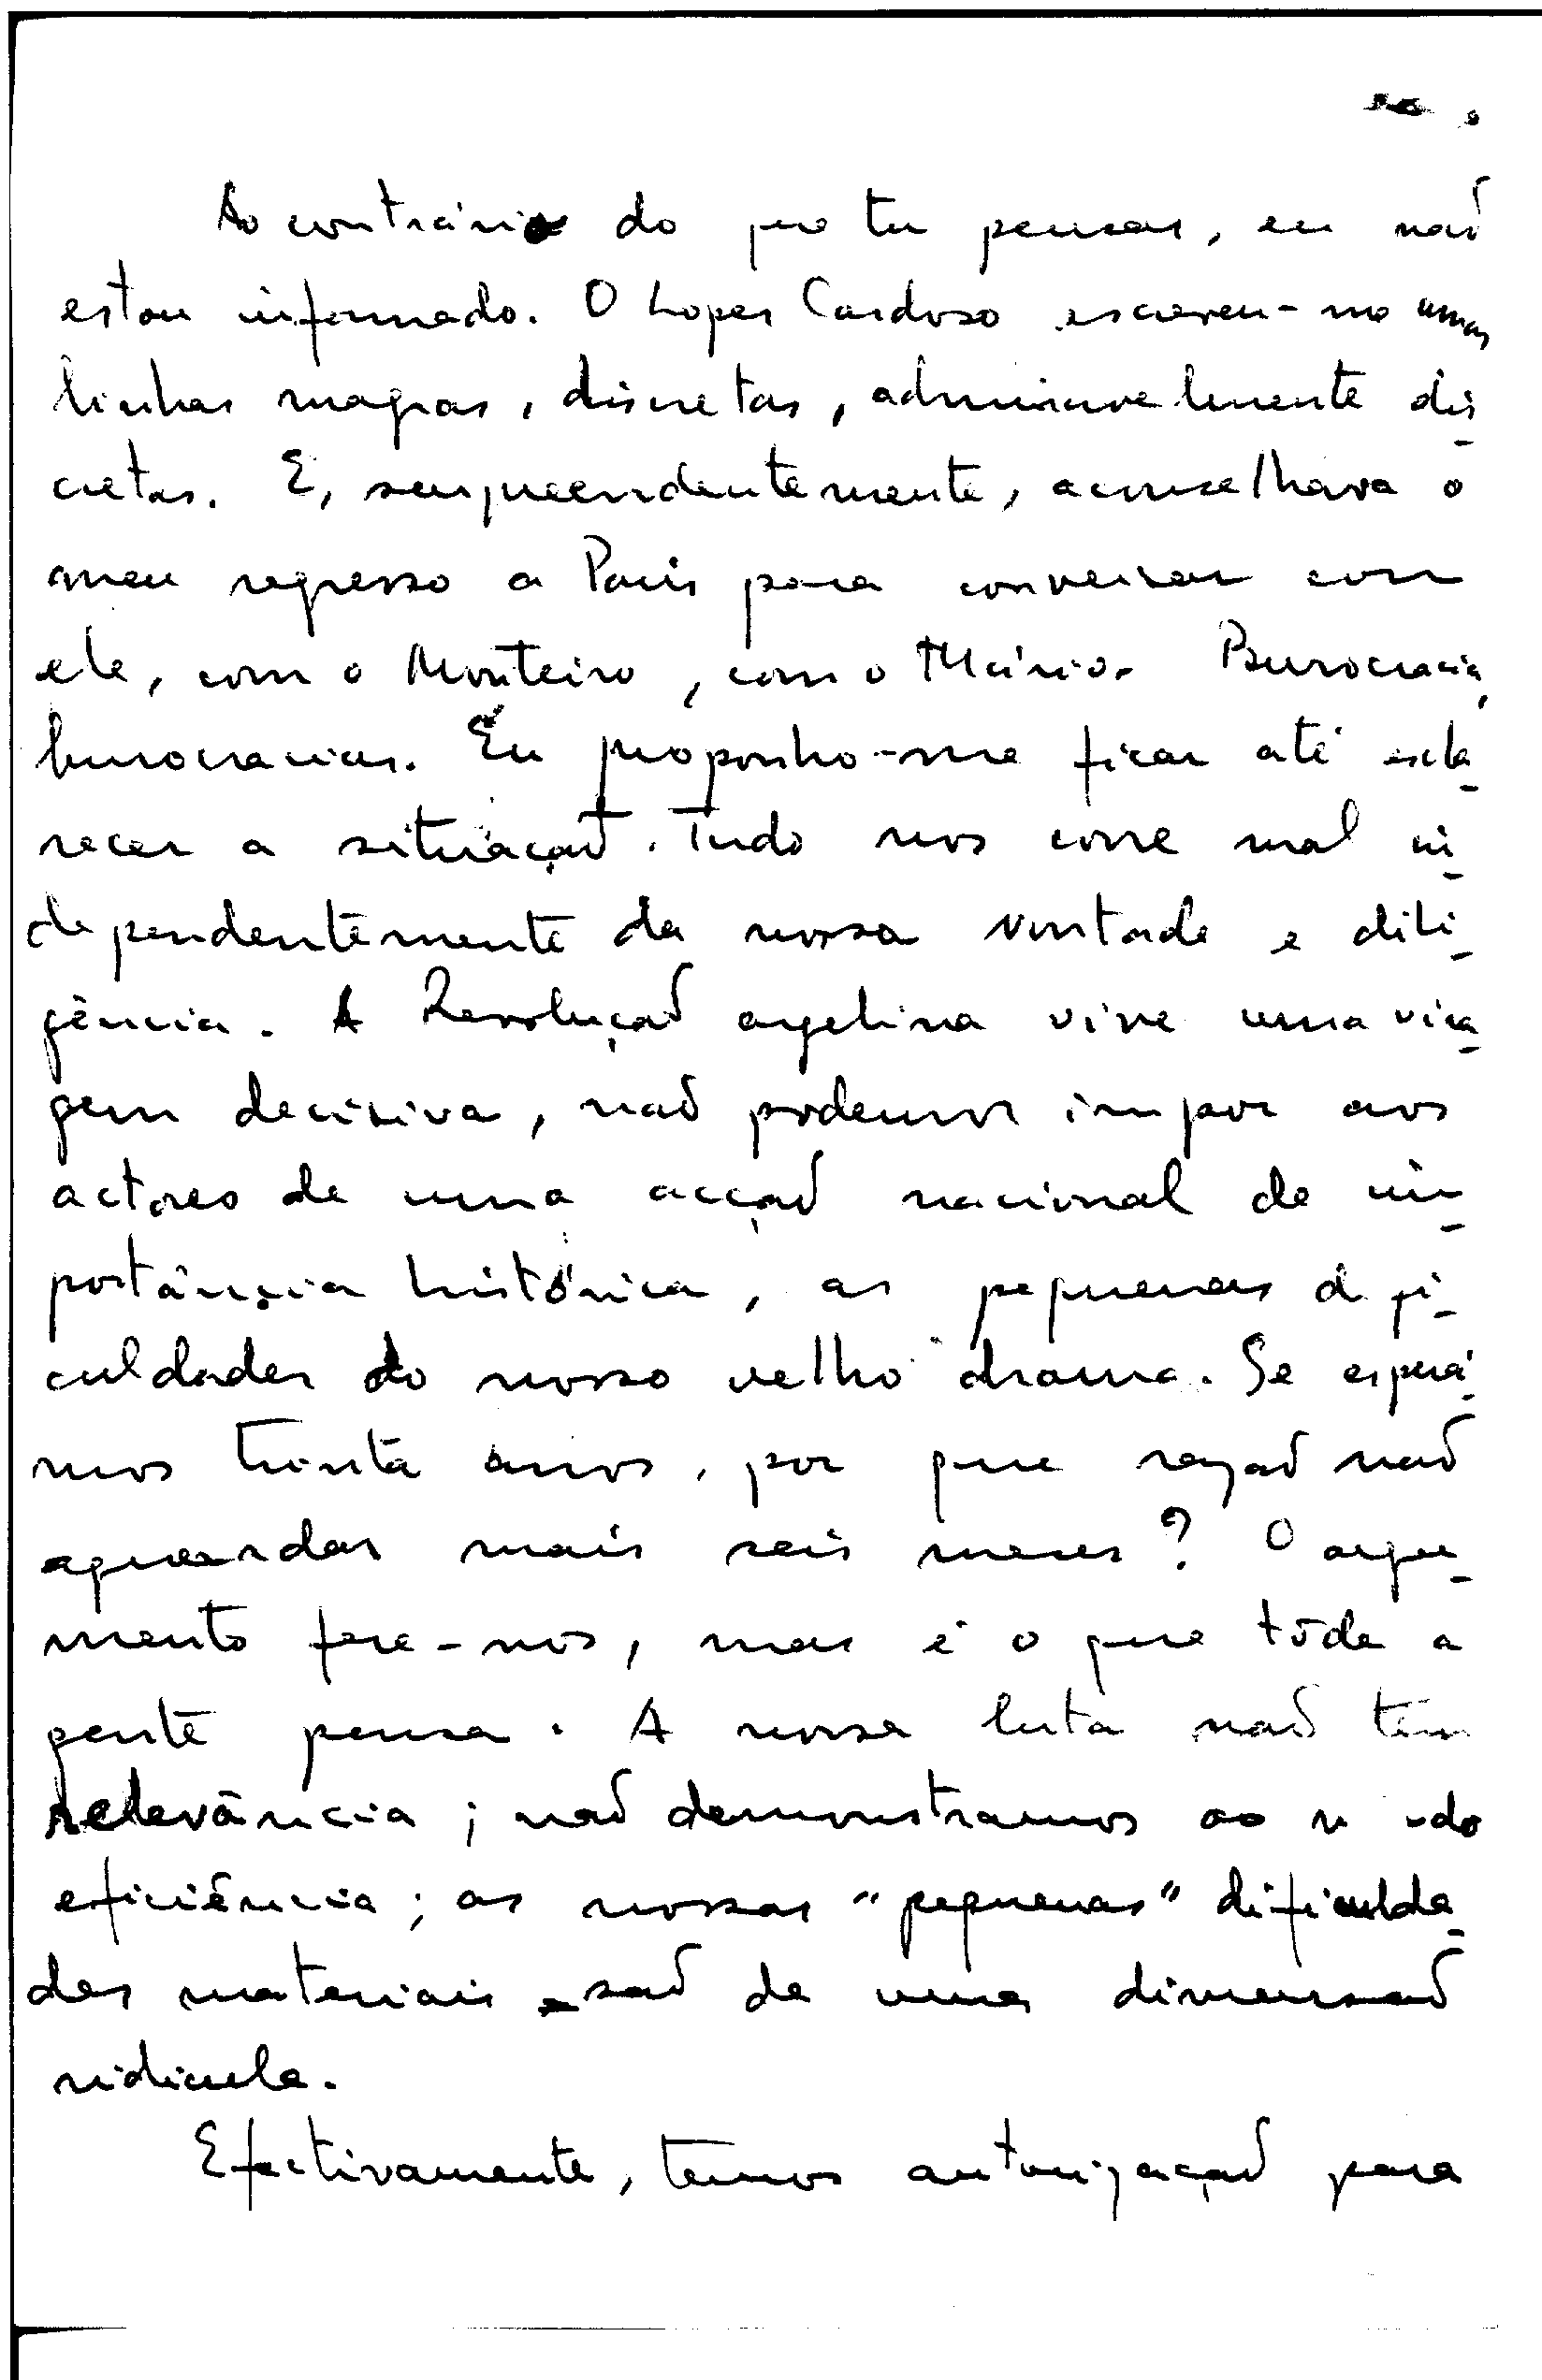 Ao contrário do que tu pensas, eu não
estou informado. O Lopes Cardoso escreveu-me umas
linhas magras, discretas, admiravelmente dis-
cretas. E, surpreendentemente, aconselhava o
meu regresso a Paris para conversar com
ele, com o Monteiro, com o Mário. Burocracia,
burocracias. Eu proponho-me ficar até escla-
recer a situação. Tudo nos corre mal in-
dependentemente da nossa vontade e dili-
gência. A Revolução argelina vive uma vira-
gem decisiva, não podemos impor aos
actores de uma acção nacional de im-
portância histórica, as pequenas difi-
culdades do nosso velho drama. Se esperá-
mos trinta anos, por que razão não
aguardar mais seis meses? O argu-
mento fere-nos, mas é o que tôda a
gente pensa. A nossa luta não tem
relevância; não demonstramos ao
eficiência; as nossas "pequenas" dificulda-
des materiais são de uma dimensão
ridícula.
Efectivamente, temos autorização para